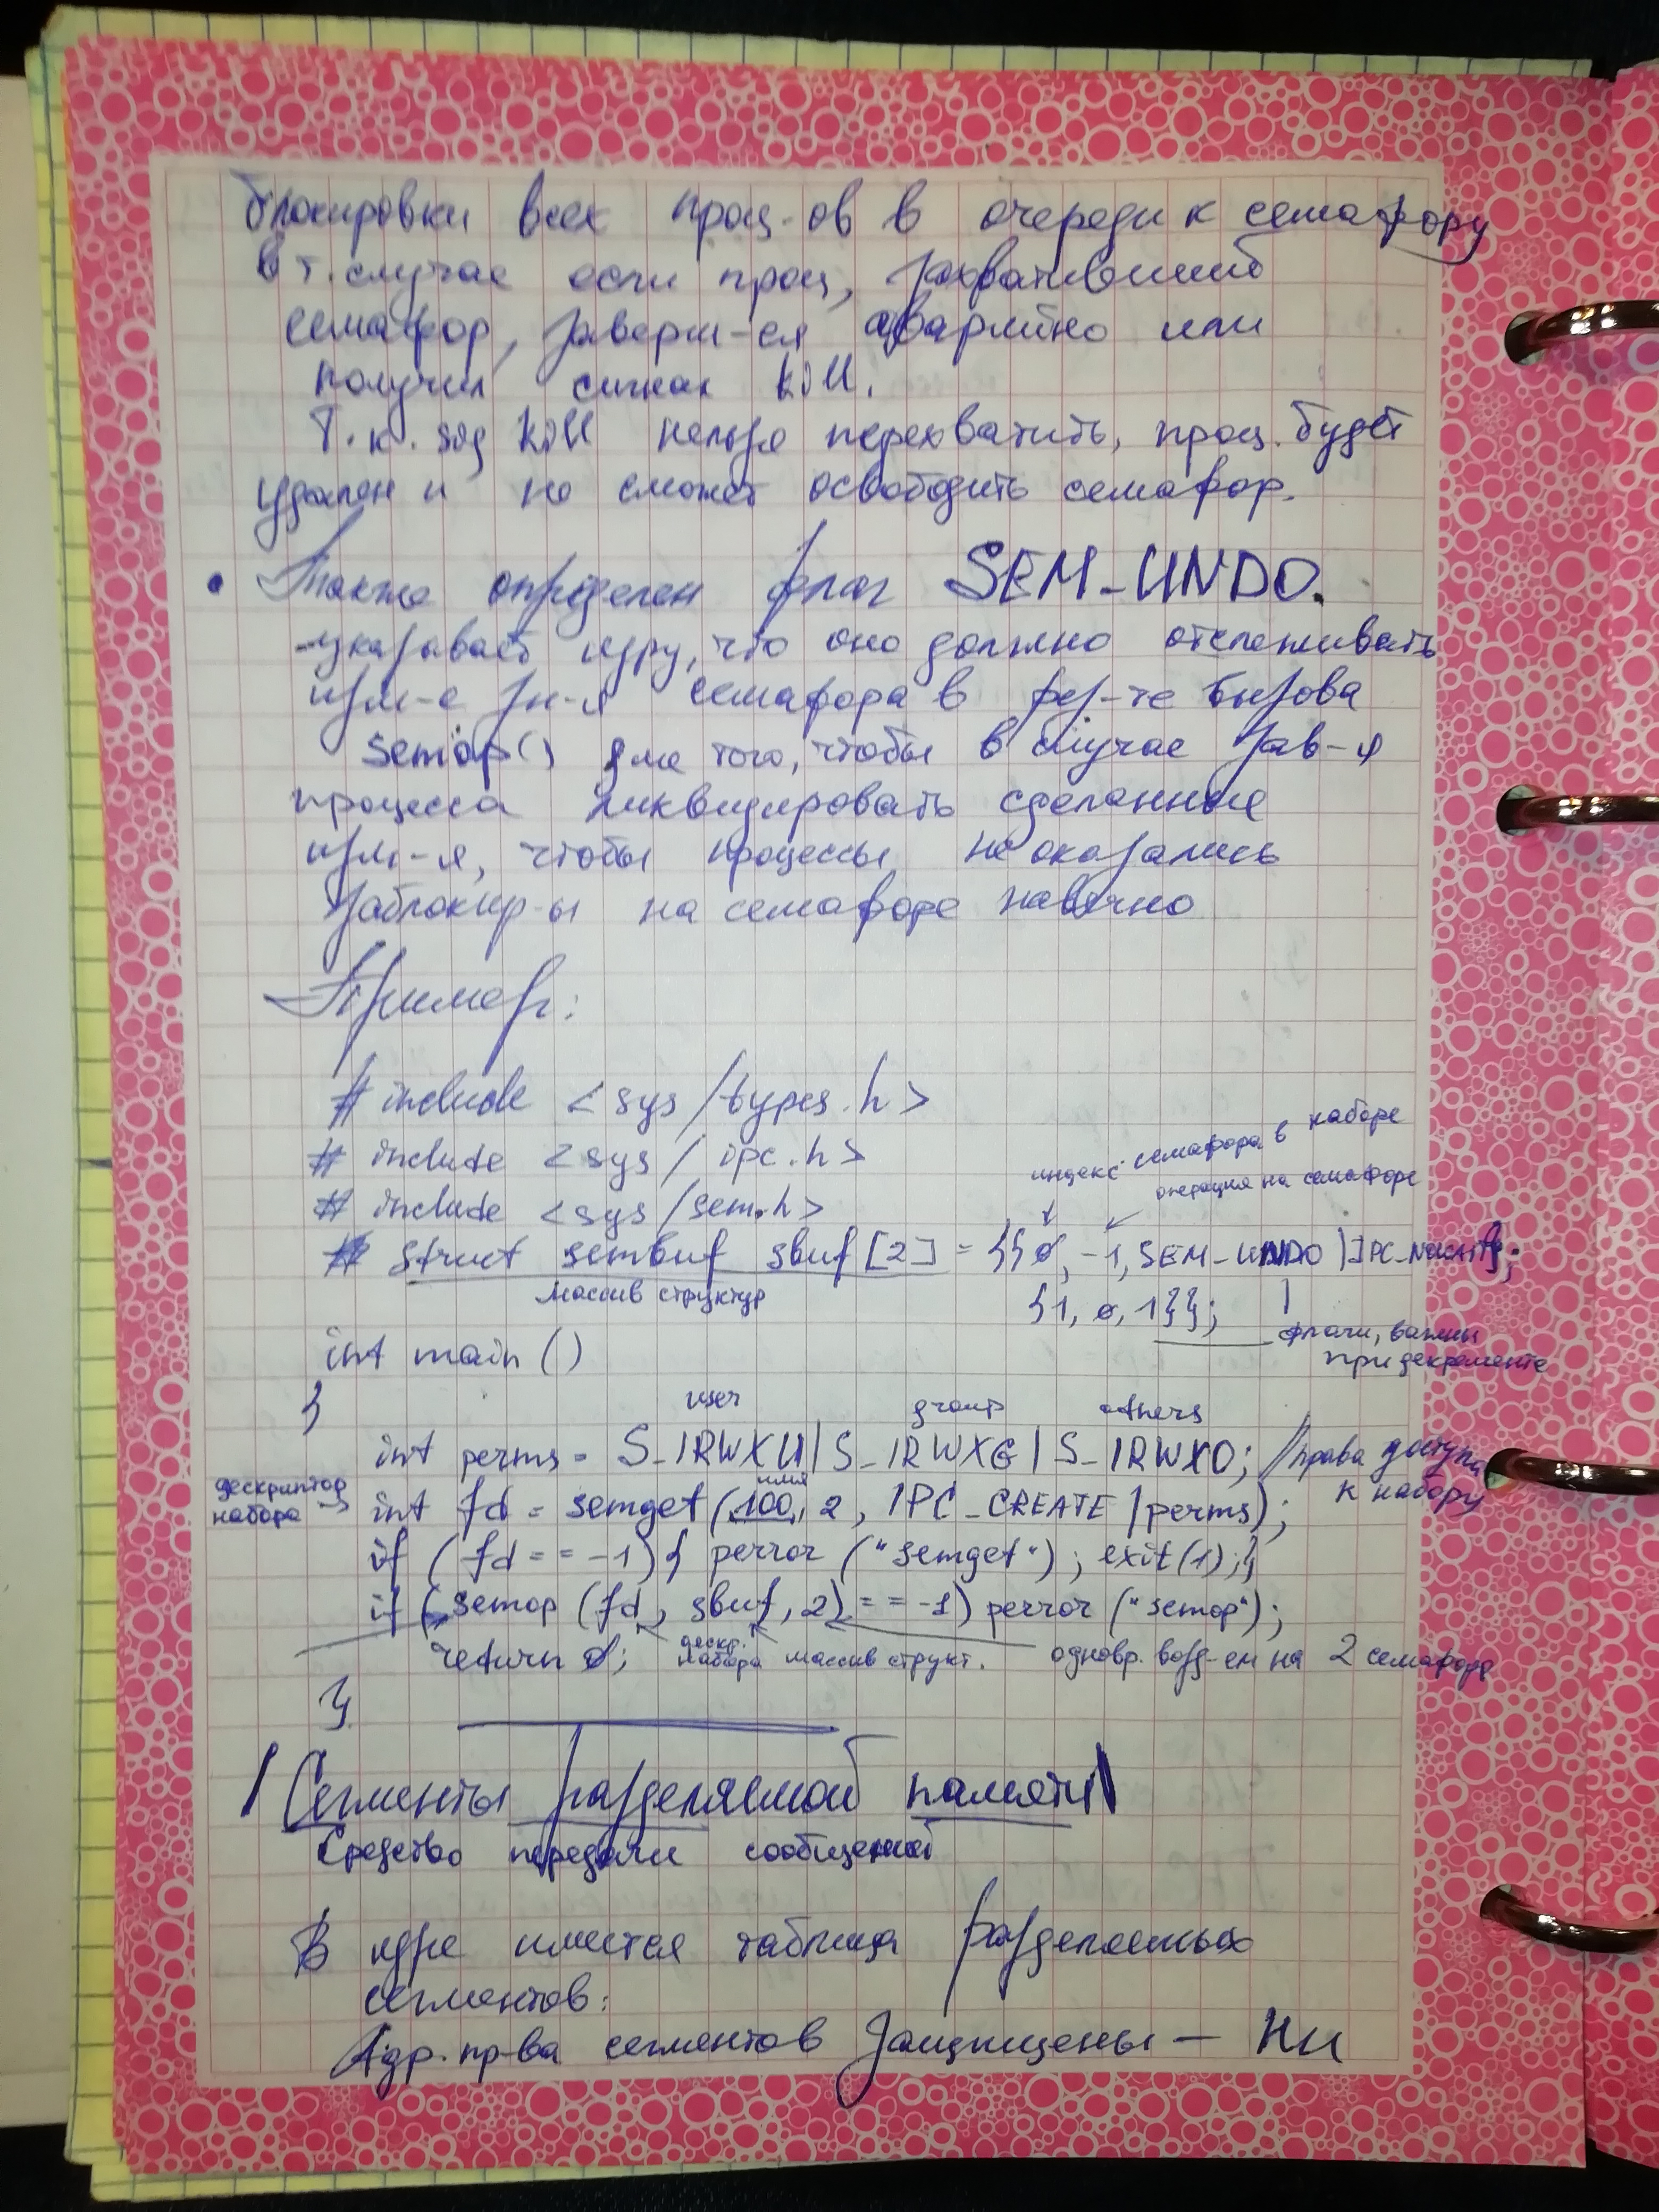 блокировки всех проц-ов в очереди к семафору
в т. случае если проц, захвативший
семафор, заверш-ся аварийно или
получил сигнал kill.
Т.к. sig kill нельзя перехватить, проц. будет
удален и не сможет освободить семафор.
• Также определен флаг SEM_UNDO.
-указывает ядру, что оно должно отслеживать
изм-е зн-я семафора в рез-те вызова
semop() для того, чтобы в случае зав-я
процесса ликвидировать сделанные
изм-я, чтобы процессы не оказались
заблокир-ы на семафоре навечно
Пример:
# include <sys/types.h>
# include <sys/ipc.h>
# include <sys/sem.h>
индекс семафора в наборе
операция на семафоре
struct sembuf sbuf[2] = {{0, -1, SEM_UNDO | IPC_NOWAIT};
массив структур
{1, 0, 1}};
флаги, важны
при декременте
int main()
{
user group others
int perms = S_IRWXU | S_IRWXG | S_IRWXO; // права доступа
к набору
дескриптор
набора →
имя
int fd = semget(100, 2, IPC_CREATE | perms);
if (fd == -1) { perror("semget"); exit(1);}
if (semop(fd, sbuf, 2) == -1) perror("semop");
return 0;
дескр.
набора массив структ. одновр. возд-ем на 2 семафора
}
Сегменты разделяемой памяти
Средство передачи сообщений
В ядре имеется таблица разделяемых
сегментов:
Адр. пр-ва сегментов защищены — ни